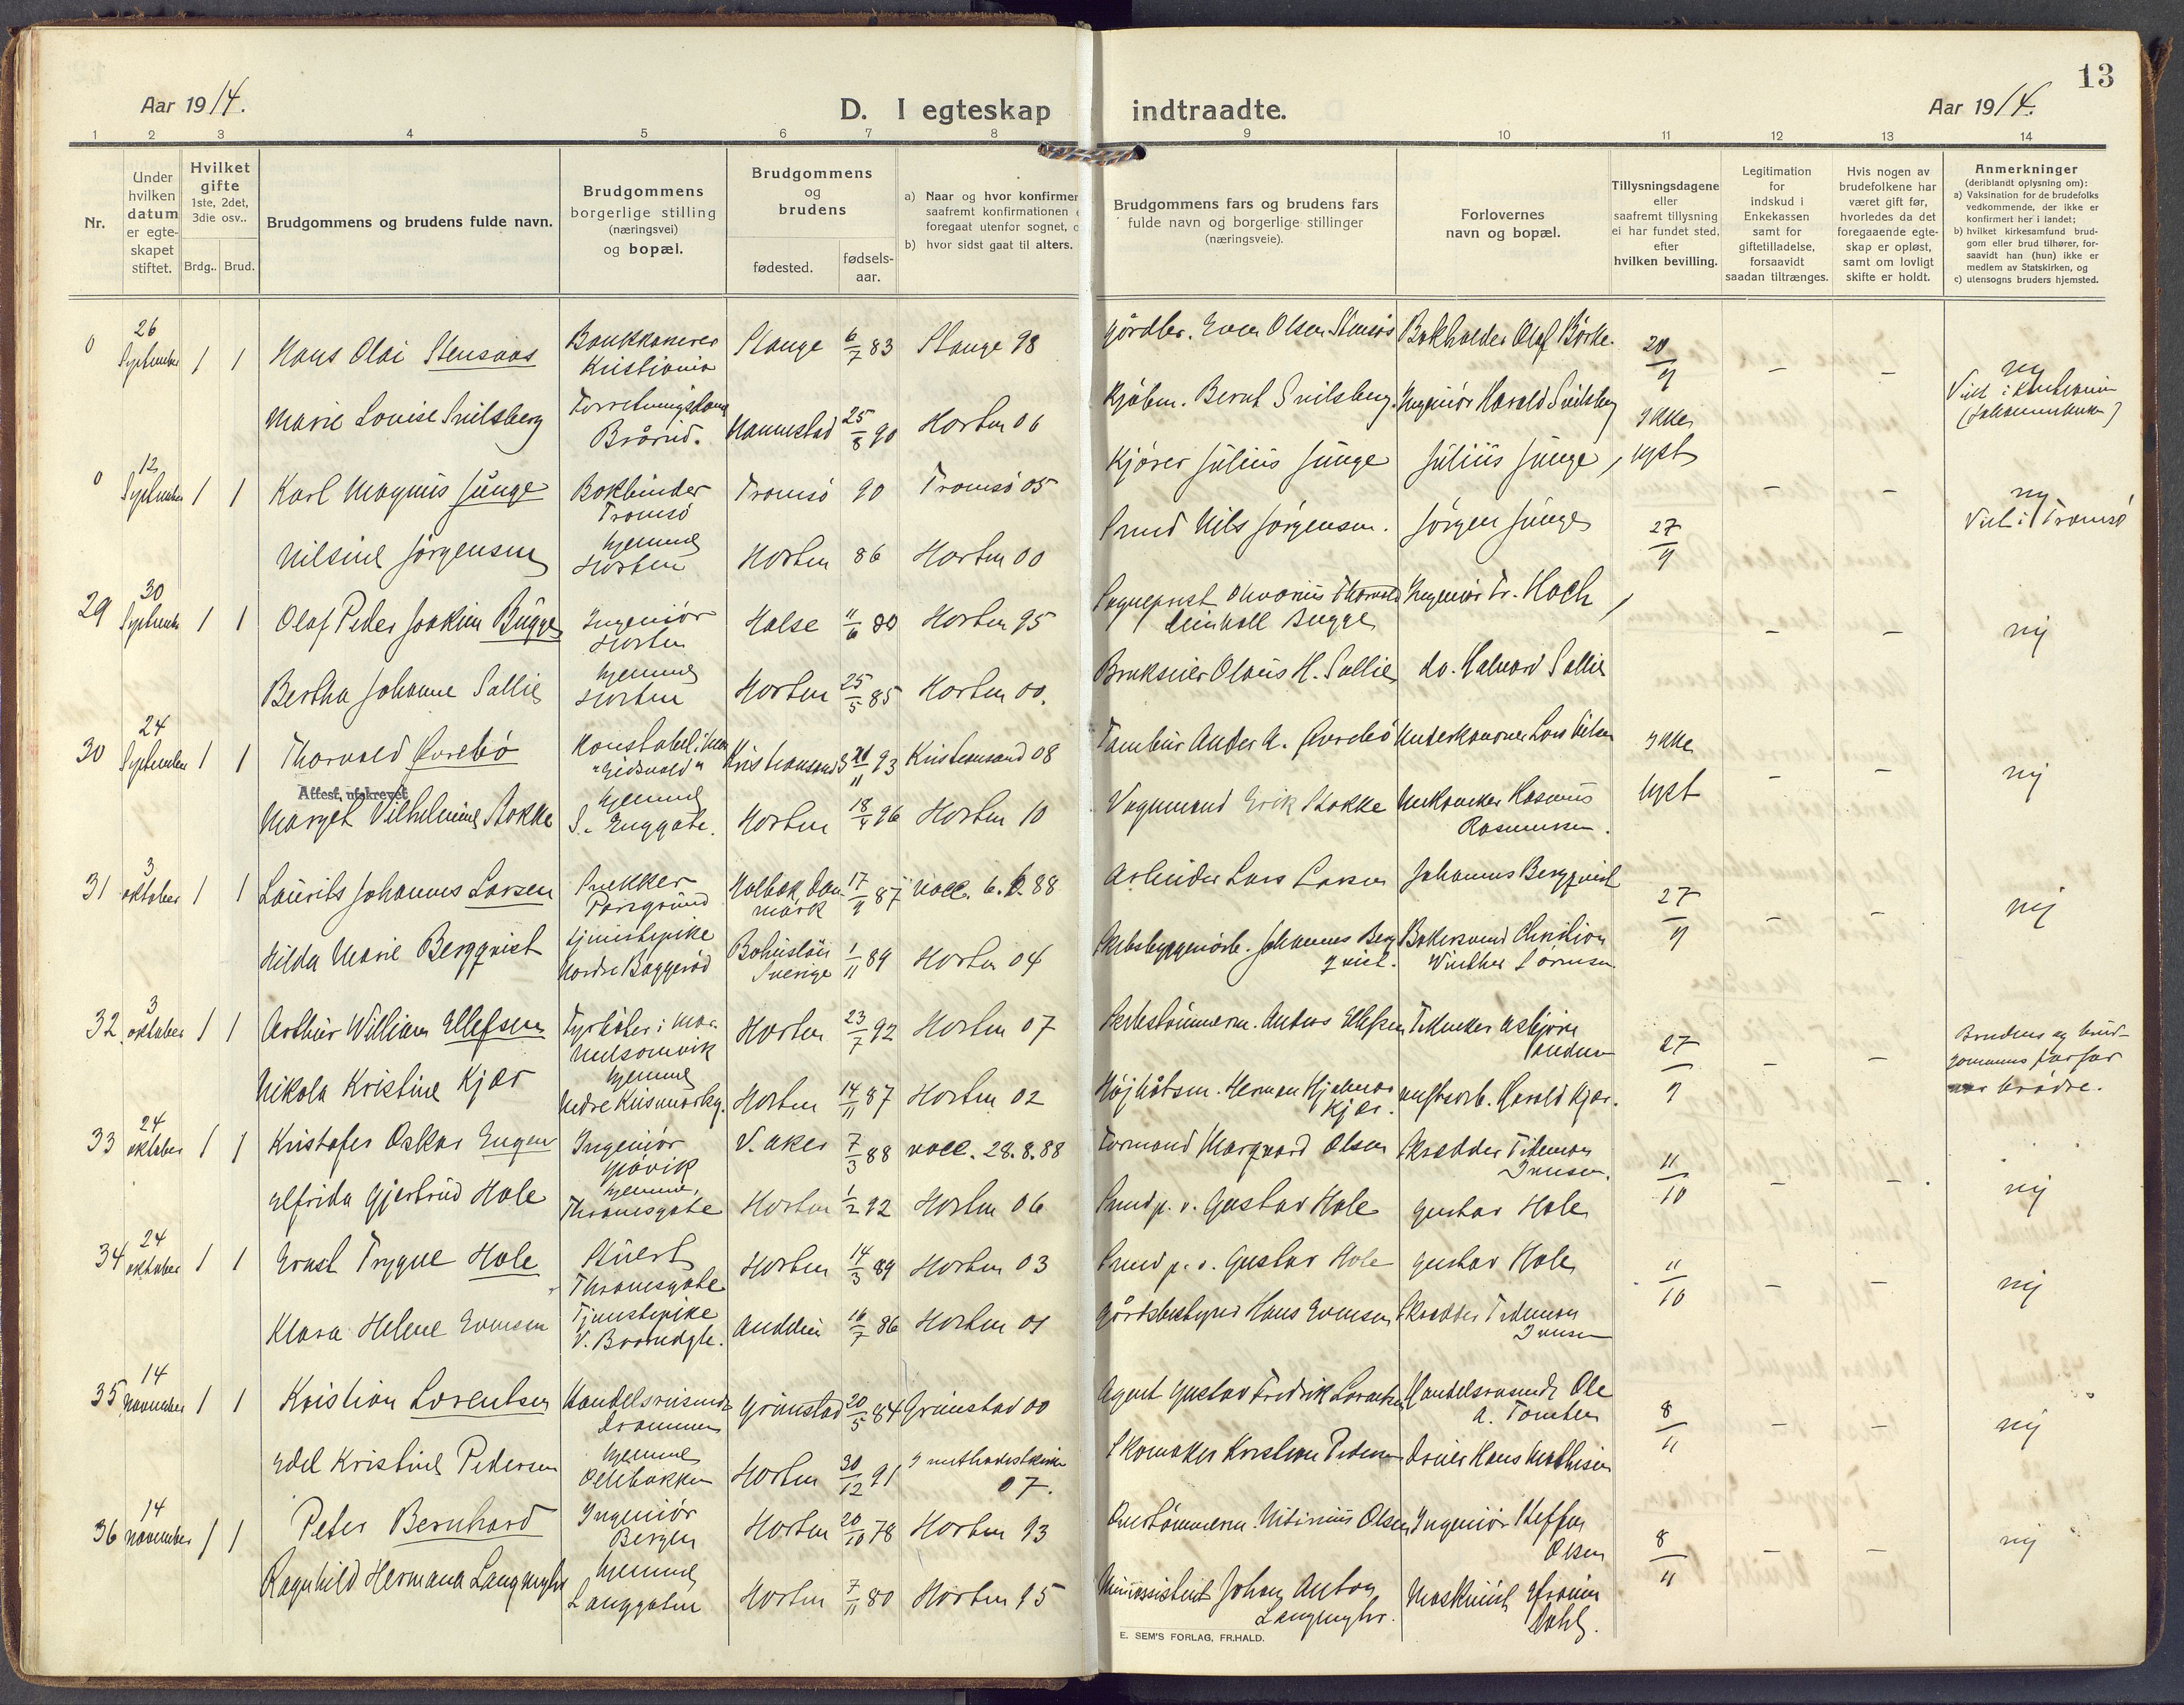 13
Aar 1914.
D. I egteskap indtraadte.
Aar 1914.
1 2 3 4 5 6 7 8 9 10 11 12 13 14
Nr.
Under hvilken datum er egteskapet stiftet.
Hvilket gifte 1ste, 2det, 3die osv..
Brdg.. Brud.
Brudgommens og brudens fulde navn.
Brudgommens borgerlige stilling (næringsvei) og bopæl.
Brudgommens og brudens
fødested. fødsels-aar.
a) Naar og hvor konfirmer
saafremt konfirmationen
foregaat utenfor sognet,
b) hvor sidst gaat til alters.
Brudgommens fars og brudens fars
fulde navn og borgerlige stillinger
(næringsveie).
Forlovernes
navn og bopæl.
Tillysningsdagene
eller
saafremt tillysning
ei har fundet sted,
efter
hvilken bevilling.
Legitimation
for
indskud i
Enkekassen
samt for
giftetilladelse,
forsaavidt
saadan tiltrænges.
Hvis nogen av
brudefolkene har
været gift før,
hvorledes da det
foregaaende egte-
skap er opløst,
samt om lovligt
skifte er holdt.
Anmerkninger
(deriblandt oplysning om):
a) Vaksination for de brudefolks
vedkommende, der ikke er
konfirmert her i landet;
b) hvilket kirkesamfund brud-
gom eller brud tilhører, for-
saavidt han (hun) ikke er
medlem av Statskirken, og
c) utensogns bruders hjemsted.
0 26 September 1 1 Hans Olai Stensaas Bankkasserer Kristiania Stange 6/7 83 Stange 98 Gårdbr. Even Olsen Stensås Bokholder Olaf Börke. 20/9 – – nej
Viet i Kristiania
Marie Louise Snilsberg Brårud. 25/8 90 Horten 06 Kjöbm. Bernt Snilsberg. Ingeniör Harald Snilsberg
0 12 September 1 1 Karl Magnus Junge Bokbinder Tromsö Tromsö 90 Tromsö 05 Kjörer Julius Junge Julius Junge, ikke lyst – – nej
Viet i Tromsö
Nilsine Jörgensen hjemme Horten Horten 86 Horten 00 Smed Nils Jörgensen. Jörgen Junge
29 30 September 1 1 Olaf Peder Joakim Bugge Ingeniör Horten Halse 11/6 80 Horten 95 Sogneprest Bugge Ingeniör Fr. Hoch, 27/9 – – nej
Bertha Johanne Sollie hjemme Horten Horten 25/5 85 Horten 00. Brukseier Olaus H. Sollie do. Halvard Sollie
30 24 September 1 1 Thorvald Övrebö Konstabel "Eidsvold" Kristiansand S 93 Kristiansand 08 Tambur Övrebö Underkanoner Lars Nilsen ikke lyst – – nej
Attest, utskrevet
Marget Vilhelmine Stokke hjemme S. Enggate. Horten 18/4 96 Horten 10 Vognmand Erik Stokke Rasmus Rasmussen.
31 3 oktober 1 1 Laurits Johannes Larsen Snekker Porsgrund Holbæk, Danmark 17/9 87 vacc. 6. 6. 88 Arbeider Lars Larsen Johannes Bergqvist 27/9 – – nej
Hilda Marie Bergqvist tjenestepike Nordre Baggeröd Bohuslän Sverige 1/11 89 Horten 04 Johannes Bergqvist. Bakersvend Christian Winther Sörensen
32. 3 oktober 1 1 Arthur William Ellefsen Fyrböter i mar. Horten 23/7 92 Horten 07 Skibstömmerm. Ellefsen Asbjörn 27/9 – –
Brudens og brud-
gommens farfar
var brödre.
Nikola Kristine Kjær hjemme Horten 14/11 87 Horten 02 Höjbåtsm. Herman Hjalmar Kjær. Harald Kjær.
33 24 oktober 1 1 Kristofer Oskar Eugen Ingeniör Gjövik V. Aker 7/3 88 vacc. 28.8.88 Formand Marqvard Olsen Skrædder Tideman Iversen. 11/10 – – nej
Elfrida Gjertrud Hole hjemme, Thranesgate Horten 1/2 92 Horten 06 Smed p. v. Gustav Hole Gustav Hole
34 24 oktober 1 1 Ernst Trygve Hole Stuert Thranesgate Horten 14/3 89 Horten 03 Smed p. v. Gustav Hole Gustav Hole 11/10 – – nej
Klara Helene Evensen Tjenestepike V. Braarudgt. Andebu 16/7 86 Horten 01 Gårdsbestyrer Hans Evensen Skrædder Tideman Iversen
35 14 november 1 1 Kristian Lorentsen Handelsreisende Drammen Grimstad 20/5 84 Grimstad 00 Agent Gustav Fredrik Lorentsen Handelsreisende Ole A. Tomten 8/11 – – nej
Edel Kristine Pedersen hjemme Horten 30/12 91 I methodistkirken 07. Skomaker Kristian Pedersen Dreier Hans Mathisen
36 14 november 1 1 Peter Bernhard Ingeniör Bergen Horten 20/10 78 Horten 93 Olsen Ingeniör Steffen Olsen 8/11 – – nej
Ragnhild Hermana Langmyhr hjemme Langgaten Horten 7/11 80 Horten 95 Johan Anton Langmyhr. Maskinist Dahl.
E. SEM'S FORLAG, FR.HALD.